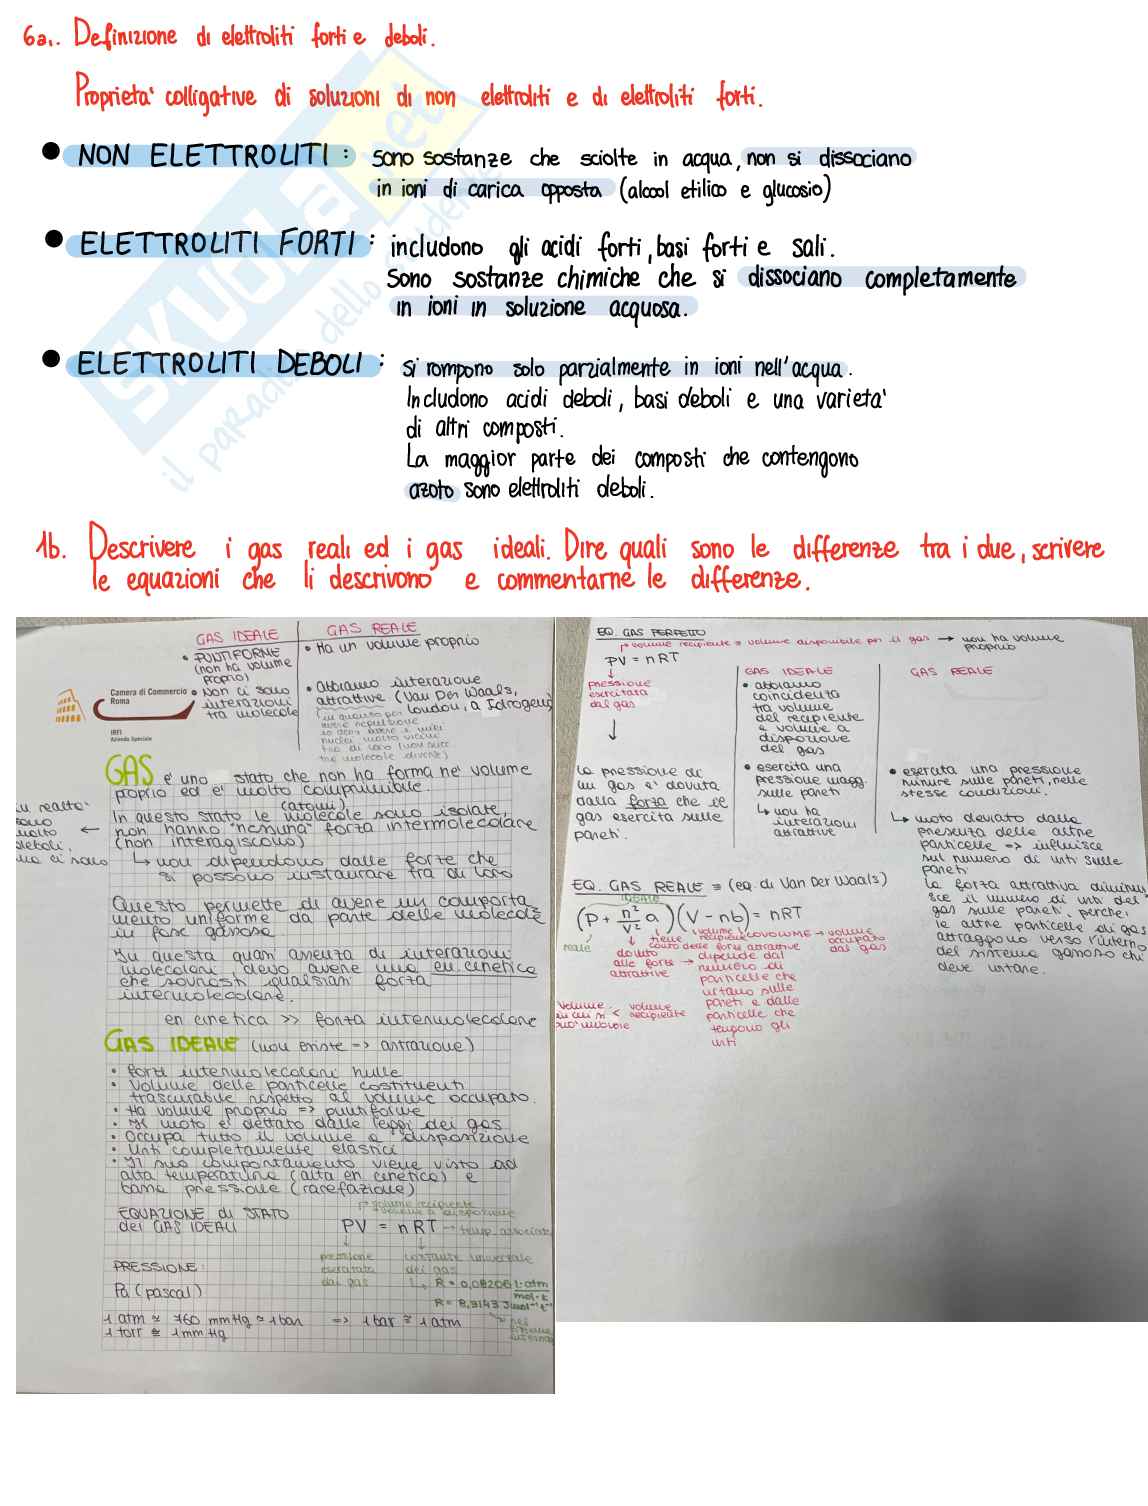 6a. Definizione di elettroliti forti e deboli.
Proprietà colligative di soluzioni di non elettroliti e di elettroliti forti.
NON ELETTROLITI : sono sostanze che sciolte in acqua, non si dissociano
in ioni di carica opposta (alcool etilico e glucosio)
ELETTROLITI FORTI : includono gli acidi forti, basi forti e sali.
Sono sostanze chimiche che si dissociano completamente
in ioni in soluzione acquosa.
ELETTROLITI DEBOLI : Si rompono solo parzialmente in ioni nell'acqua.
Includono acidi deboli, basi deboli e una varietà
di altri composti.
La maggior parte dei composti che contengono
azoto sono elettroliti deboli.
SKUOLA.net
il paradiso dello studente
1b. Descrivere i gas reali ed i gas ideali. Dire quali sono le differenze tra i due, scrivere
le equazioni che li descrivono e commentarne le differenze.
GAS IDEALE
• PUNTIFORME
(non ha volume
proprio)
• Non ci sono
interazioni
tra molecole
GAS REALE
• Ha un volume proprio
• Abbiamo interazione
attrattive (Van Der Waals,
London, a Idrogeno)
Camera di Commercio
Roma
IRFI
Azienda Speciale
GAS è uno stato che non ha forma nè volume
proprio ed è molto comprimibile.
(atomi)
In questo stato le molecole sono isolate,
non hanno "nessuna" forza intermolecolare
(non interagiscono)
in realtà
sono
molto
deboli,
ma ci sono
↳ non dipendono dalle forze che
si possono instaurare tra di loro
Questo permette di avere un comporta
mento uniforme da parte delle molecole
in fase gassosa
In questa quasi assenza di interazioni
molecolari, devo avere una en cinetica
che sovrasti qualsiasi forza
intermolecolare.
en cinetica >> forza intermolecolare
GAS IDEALE (non esiste => astrazione)
• forze intermolecolari nulle
• Volume delle particelle costituenti
trascurabile rispetto al volume occupato.
• Ha volume proprio => puntiforme
• Il moto è dettato dalle leggi dei gas
• Occupa tutto il volume a disposizione
• Urti completamente elastici
• Il suo comportamento viene visto ad
alta temperatura (alta en cinetica) e
bassa pressione (rarefazione)
EQUAZIONE di STATO
dei GAS IDEALI
volume recipiente
volume a disposizione
PV = nRT → temp. associata
pressione
esercitata
dai gas
costante universale
dei gas
↳ R = 0,08206 l·atm
mol·k
R = 8,3143 J mol⁻¹ k⁻¹
PRESSIONE:
Pa (pascal)
1 atm ≃ 760 mmHg ≃ 1 bar => 1 bar ≃ 1 atm
1 torr ≃ 1 mmHg
EQ. GAS PERFETTO
volume recipiente = volume disponibile per il gas → non ha volume
proprio
PV = nRT
pressione
esercitata
dal gas
La pressione di
un gas è dovuta
dalla forza che il
gas esercita sulle
pareti.
GAS IDEALE
• abbiamo
coincidenza
tra volume
del recipiente
e volume a
disposizione
del gas
• esercita una
pressione magg.
sulle pareti
↳ non ha
interazioni
attrattive
GAS REALE
• esercita una pressione
minore sulle pareti, nelle
stesse condizioni.
↳ moto deviato dalla
presenza delle altre
particelle => influisce
sul numero di urti sulle
pareti
La forza attrattiva diminui
sce il numero di urti del
gas sulle pareti, perché
le altre particelle di gas
attraggono verso l'interno
del sistema gassoso chi
deve urtare.
EQ. GAS REALE = (eq. di Van Der Waals)
IDEALE
(P + n²/V² a)(V - nb) = nRT
reale
dovuto
alle forze
attrattive
tiene
conto delle forze attrattive
→ dipende dal
numero di
particelle che
urtano sulle
pareti e dalle
particelle che
tengono gli
urti
volume
recipiente
COVOLUME → volume
occupato
dal gas
volume
in cui si < volume
può muovere recipiente